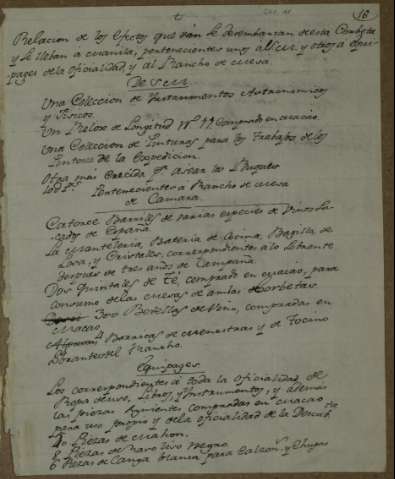 18
Relacion de los Efectos que se desembarcan de esta Corbeta
y se llevan a manila, pertenecientes unos al Rey y otros a Equi-
pages de la oficialidad, y al Rancho de mesa.
Una Coleccion de Instrumentos Astronomicos
y Fisicos
Un Relox de Longitud Nº 71 Comprado en macao.
Una Coleccion de Pinturas para los Trabajos de los
Pintores de la Expedicion.
Otra mas crecida pª asear los Buques
Pertenecientes a Rancho de mesa
de Camara.
Catorce Barriles de varias especies de Vinos Sa-
cados de España
La Mantelería, Batería de Cocina, Bagilla de
Losa, y Cristales, correspondientes a lo
de tres años de Campaña.
Dos Quintales de Té, comprado en macao, para
consumo de las mesas de ambas Corbetas
300 Botellas de Vino, compradas en
macao
Barricas de menestras y de Tocino
del Rancho.
Equipages
Los correspondientes a toda la oficialidad, de
Ropa de uso, Libros, y Instrumentos, y ademas
las piezas siguientes compradas en macao
para uso propio y de la oficialidad de la Descubª
Piezas de mahon.
6 Piezas de Raso liso negro
6 Piezas de Canga blanca para Calzon.s y Chupas